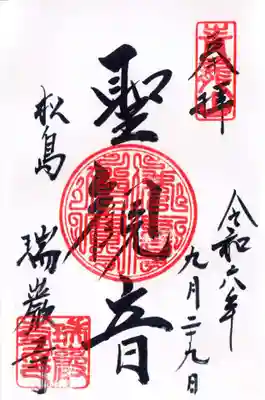 奉拝
令和六年
九月二十九日
聖観音
松島
瑞巌寺